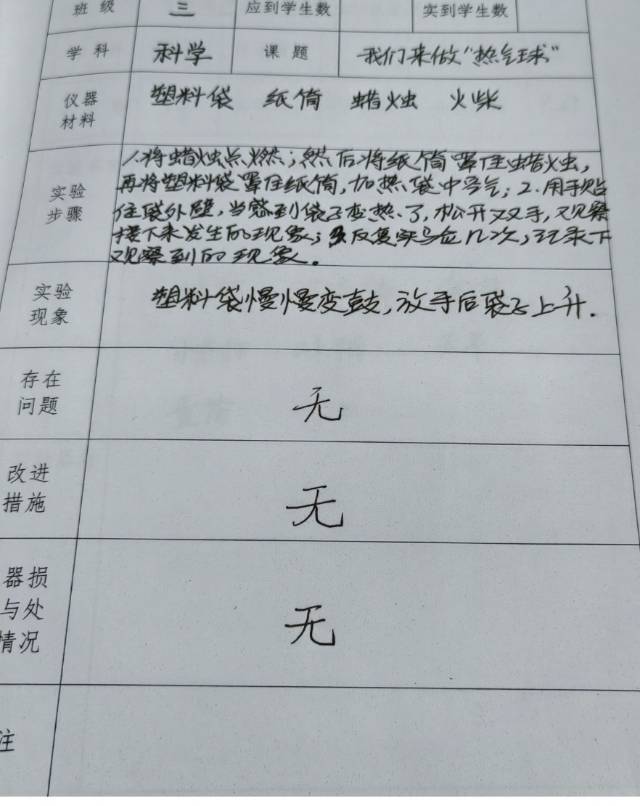 班 级 三 应到学生数 实到学生数
学 科 科学 课 题 我们来做"热气球"
仪器
材料
塑料袋 纸筒 蜡烛 火柴
实验
步骤
1.将蜡烛点燃;然后将纸筒罩住蜡烛,
再将塑料袋罩住纸筒,加热袋中空气;2.用手贴
住袋外壁,当感到袋子变热了,松开双手,观察
接下来发生的现象;反复实验几次,记录下
观察到的现象。
实验
现象
塑料袋慢慢变鼓,放手后袋子上升.
存在
问题
无
改进
措施
无
器损
与处
情况
无
注